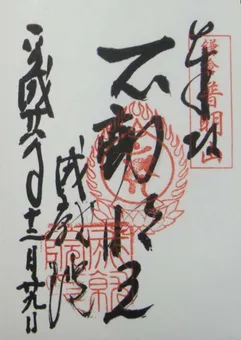 奉拝
鎌倉普明山
不動明王
成就院
平成廿八年十二月廿九日